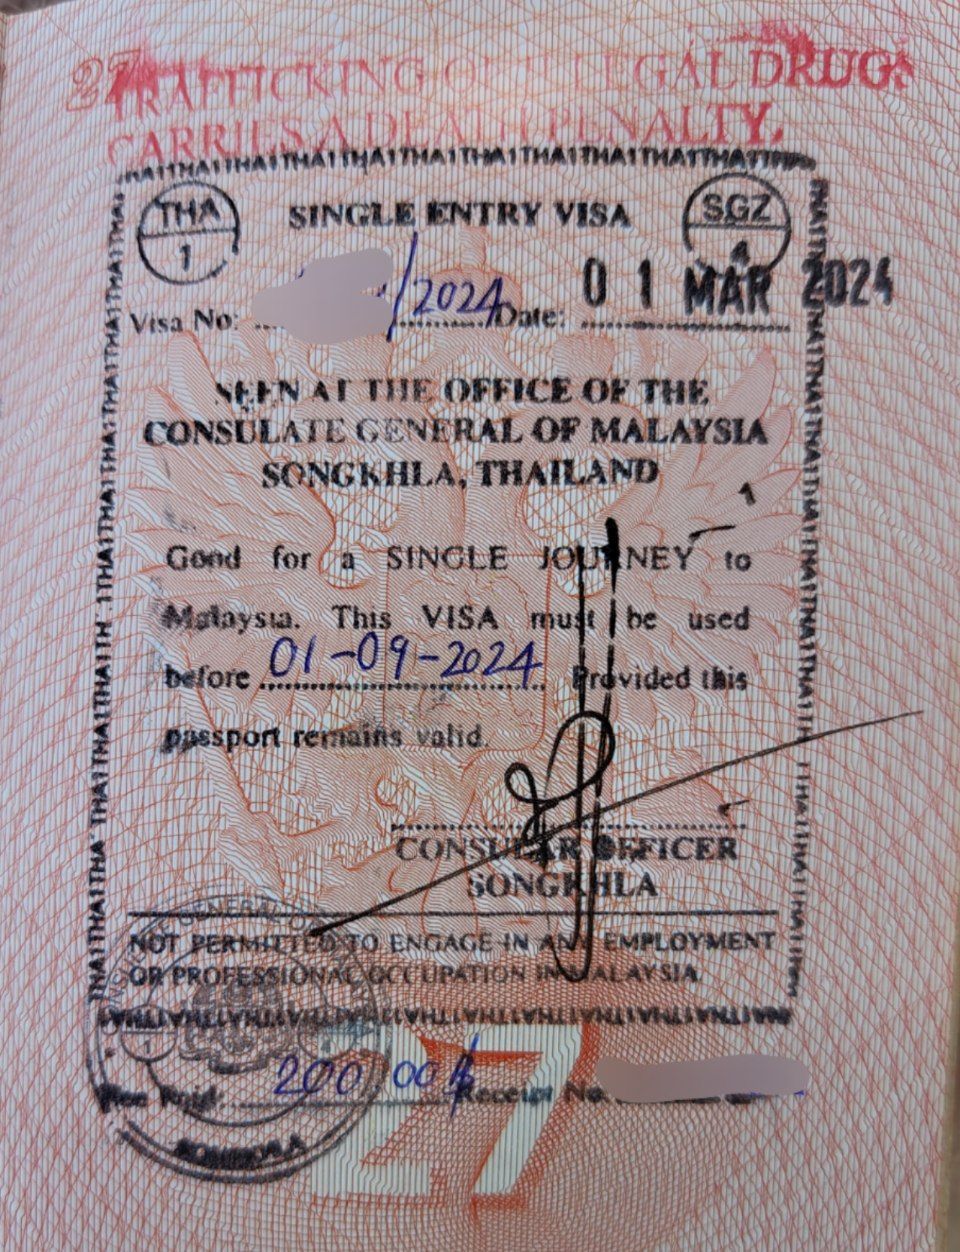 27
TRAFFICKING OF ILLEGAL DRUGS
CARRIES A DEATH PENALTY.
THA1THA1THA1THA1THA1THA1THA1THA1THA1
THA
1
SINGLE ENTRY VISA
SGZ
4
Visa No: /2024 Date: 01 MAR 2024
SEEN AT THE OFFICE OF THE
CONSULATE GENERAL OF MALAYSIA
SONGKHLA, THAILAND
Good for a SINGLE JOURNEY to
Malaysia. This VISA must be used
before 01-09-2024 Provided this
passport remains valid.
CONSULAR OFFICER
SONGKHLA
NOT PERMITTED TO ENGAGE IN ANY EMPLOYMENT
OR PROFESSIONAL OCCUPATION IN MALAYSIA
Fee Paid: 200.00฿ Receipt No.
GENERAL
SONGKHLA
27